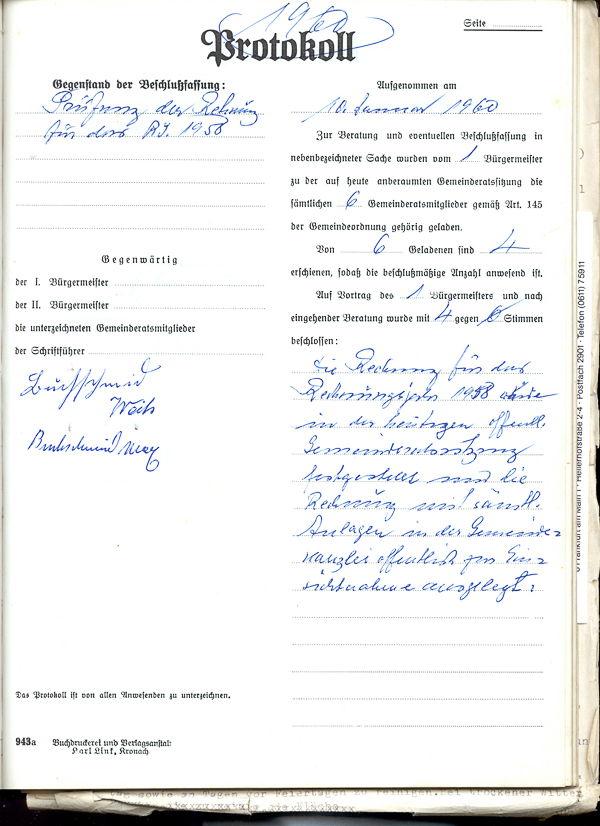 1960
Seite
Protokoll
Gegenstand der Beschlußfassung:
Prüfung der Rechnung
für das RJ. 1958
Gegenwärtig
der I. Bürgermeister
der II. Bürgermeister
die unterzeichneten Gemeinderatsmitglieder
der Schriftführer
Buchschmid
Buchschmid Max
Das Protokoll ist von allen Anwesenden zu unterzeichnen.
943a Buchdruckerei und Verlagsanstalt
Karl Link, Kronach.
Aufgenommen am
10. Januar 1960
Zur Beratung und eventuellen Beschlußfassung in
nebenbezeichneter Sache wurden vom 1 Bürgermeister
zu der auf heute anberaumten Gemeinderatssitzung die
sämtlichen 6 Gemeinderatsmitglieder gemäß Art. 145
der Gemeindeordnung gehörig geladen.
Von 6 Geladenen sind 4
erschienen, sodaß die beschlußmäßige Anzahl anwesend ist.
Auf Vortrag des 1 Bürgermeisters und nach
eingehender Beratung wurde mit 4 gegen 0 Stimmen
beschlossen:
Die Rechnung für das
Rechnungsjahr 1958 wurde
in der heutigen öffentl.
Gemeinderatssitzung
festgestellt und die
Rechnung mit sämtl.
Anlagen in der Gemeinde=
kanzlei öffentlich zur Ein=
sichtnahme ausgelegt.
Frankfurt am Main 1 · Hellerhofstraße 2-4 · Postfach 2901 · Telefon (0611) 75911
sowie an Tagen vor Feiertagen zu reinigen. Bei trockener Witter